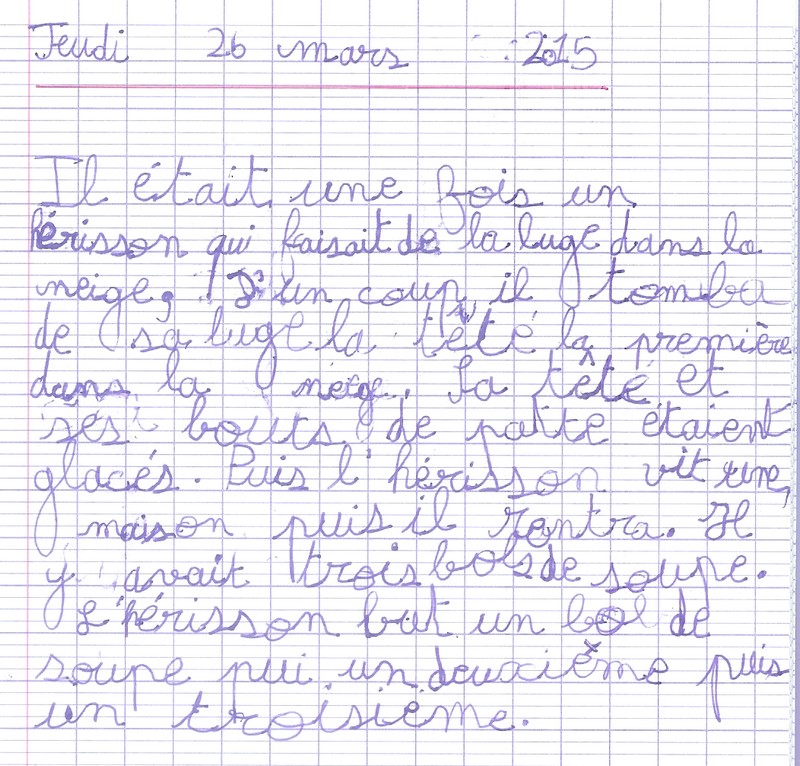 Jeudi 26 mars 2015
Il était une fois un
hérisson qui faisait de la luge dans la
neige, D'un coup il tomba
de sa luge la tété la première
dans la neige. Sa têté et
sés bouts de patte étaient
glacés. Puis l'hérisson vit une
maison puis il rentra. Il
y avait trois bols de soupe.
L'hérisson but un bol de
soupe pui un deuxième puis
un troisième.